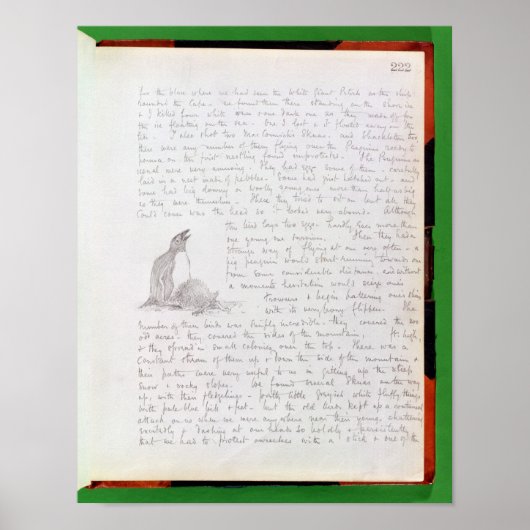 222
for the place where we had seen the White Giant Petrels on the shore
round the Cape. We found them there standing on the shore ice
& I killed four white ones & one dark one as they made off for
the ice floating on the sea. One I lost & it floated away on the
tide. I also shot two MacCormick's Skuas, and Shackleton two
there were any number of them flying over the Penguins ready to
pounce on the first nestling found unprotected. The Penguins as
usual were very amusing. They had eggs some of them, carefully
laid in a nest made of pebbles. Some had just hatched out.
Some had big downy or woolly young ones more than half as big
as they were themselves. These they tried to sit on but all they
could cover was the head so it looked very absurd. Although
the bird lays two eggs, hardly ever more than
one young one survives. Then they had a
strange way of flying at one very often. A
big penguin would start running towards one
from some considerable distance, and without
a moments hesitation would seize ones
trousers & begin battering ones shins
with its very horny flippers. The
number of these birds was simply incredible. They covered the
acres. They covered the sides of the mountain, high,
& they spread in small colonies over the top. There was a
constant stream of them up & down the side of the mountain &
their paths were very useful to us in getting up the steep
snow & rocky slopes. We found several Skuas on the way
up, with their fledgelings - pretty little greyish white fluffy things
with pale blue bills & feet - but the old birds kept up a continual
attack on us when we were anywhere near their young, chattering
excitedly & dashing at our heads so boldly & persistently
that we had to protect ourselves with a stick & one of the